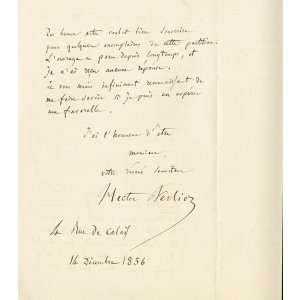 du beaux arts voulut bien souscrire
pour quelques exemplaires de cette partition.
L'ouvrage a paru depuis longtems, et
je n'ai reçu aucune réponse.
Je vous serais infiniment reconnaissant de
me faire savoir si je puis en espérer
une favorable.
J'ai l'honneur d'être
monsieur
votre dévoué serviteur
Hector Berlioz
4 Rue de Calais
14 Décembre 1856